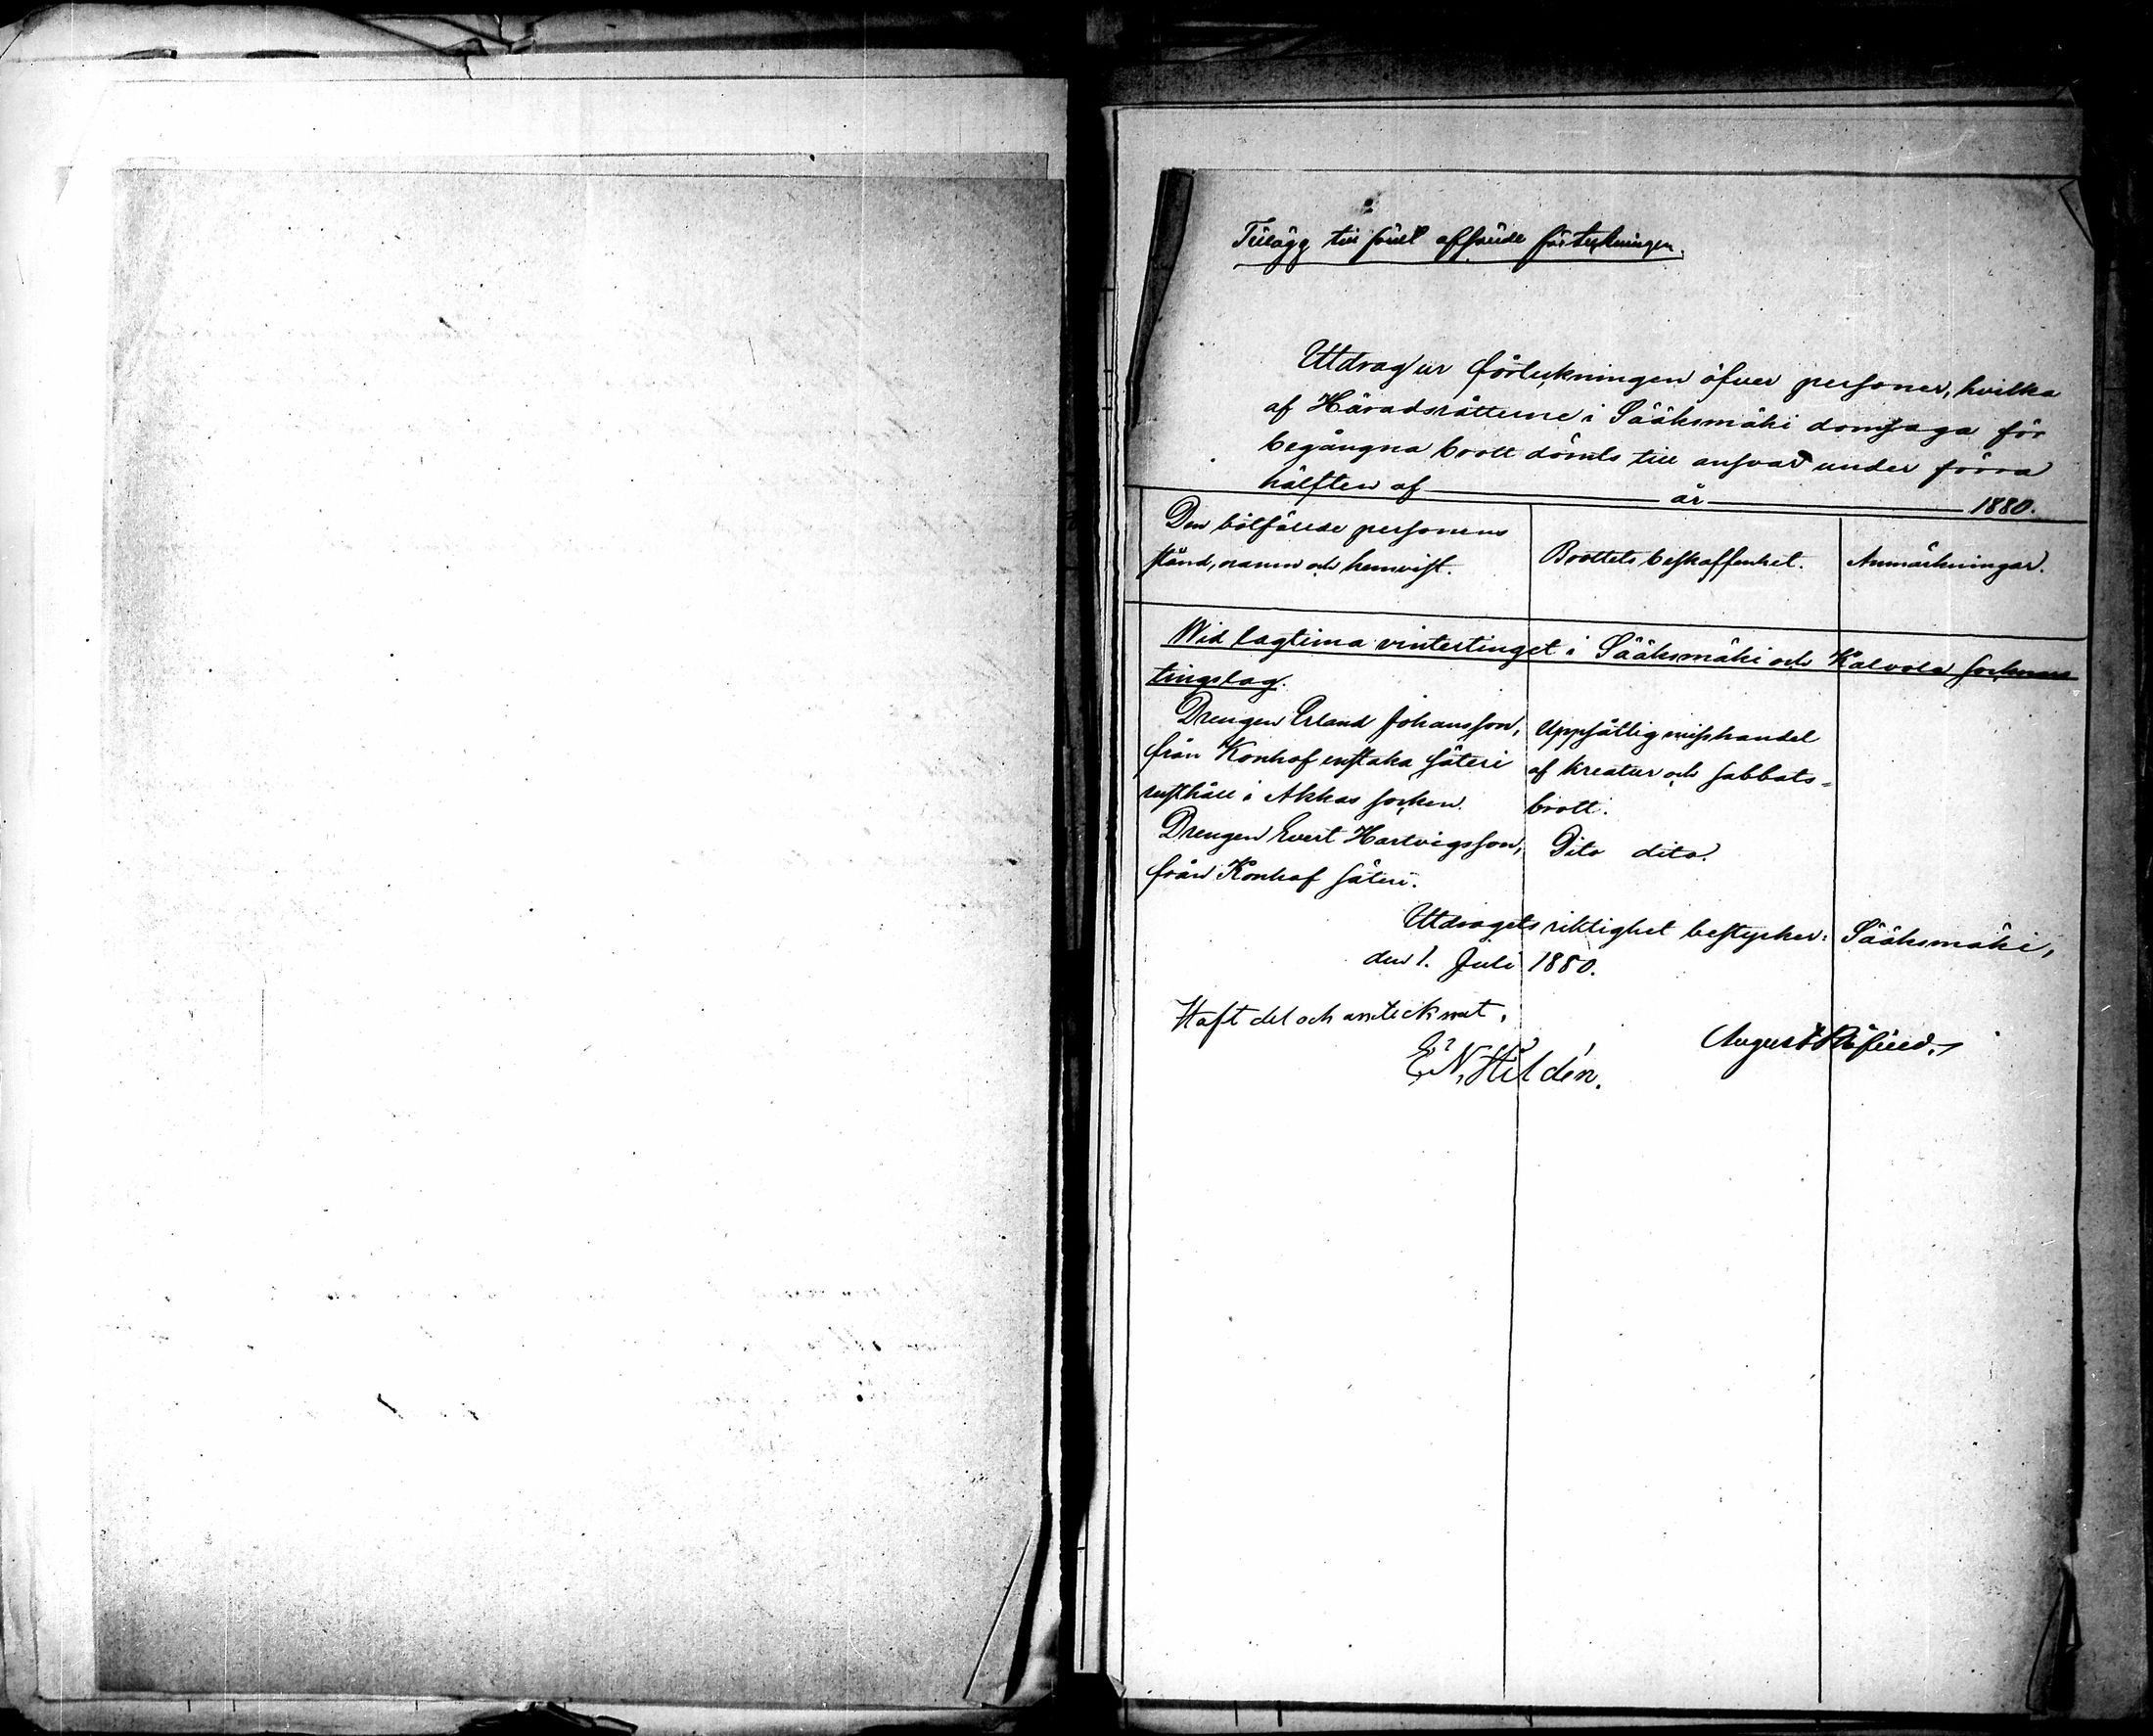 Tillägg till förut afsände förteckningen.
Utdrag ur förteckningen öfver personer, hvilka
af Häradsrätterne i Sääksmäki domsaga för
begångna brott dömts till ansvar under förra
hälften af år 1880.
Den bötfällde personens
stånd, namn och hemvist.
Brottets beskaffenhet.
Anmärkningar.
Wid lagtima vintertinget i Sääksmäki och Kalvola socknars
tingslag.
Drengen Erland Johansson,
från Konhof enstaka säteri
rusthåll i Akkas socken.
Uppsåtlig misshandel
af kreatur och sabbats-
brott.
Drengen Evert Hartvigsson,
från Konhof säteri.
Dito dito.
Utdragets riktighet bestyrker: Sääksmäki,
den 1. Juli 1880.
August
Haft del och antecknat,
E. N. Hildén.